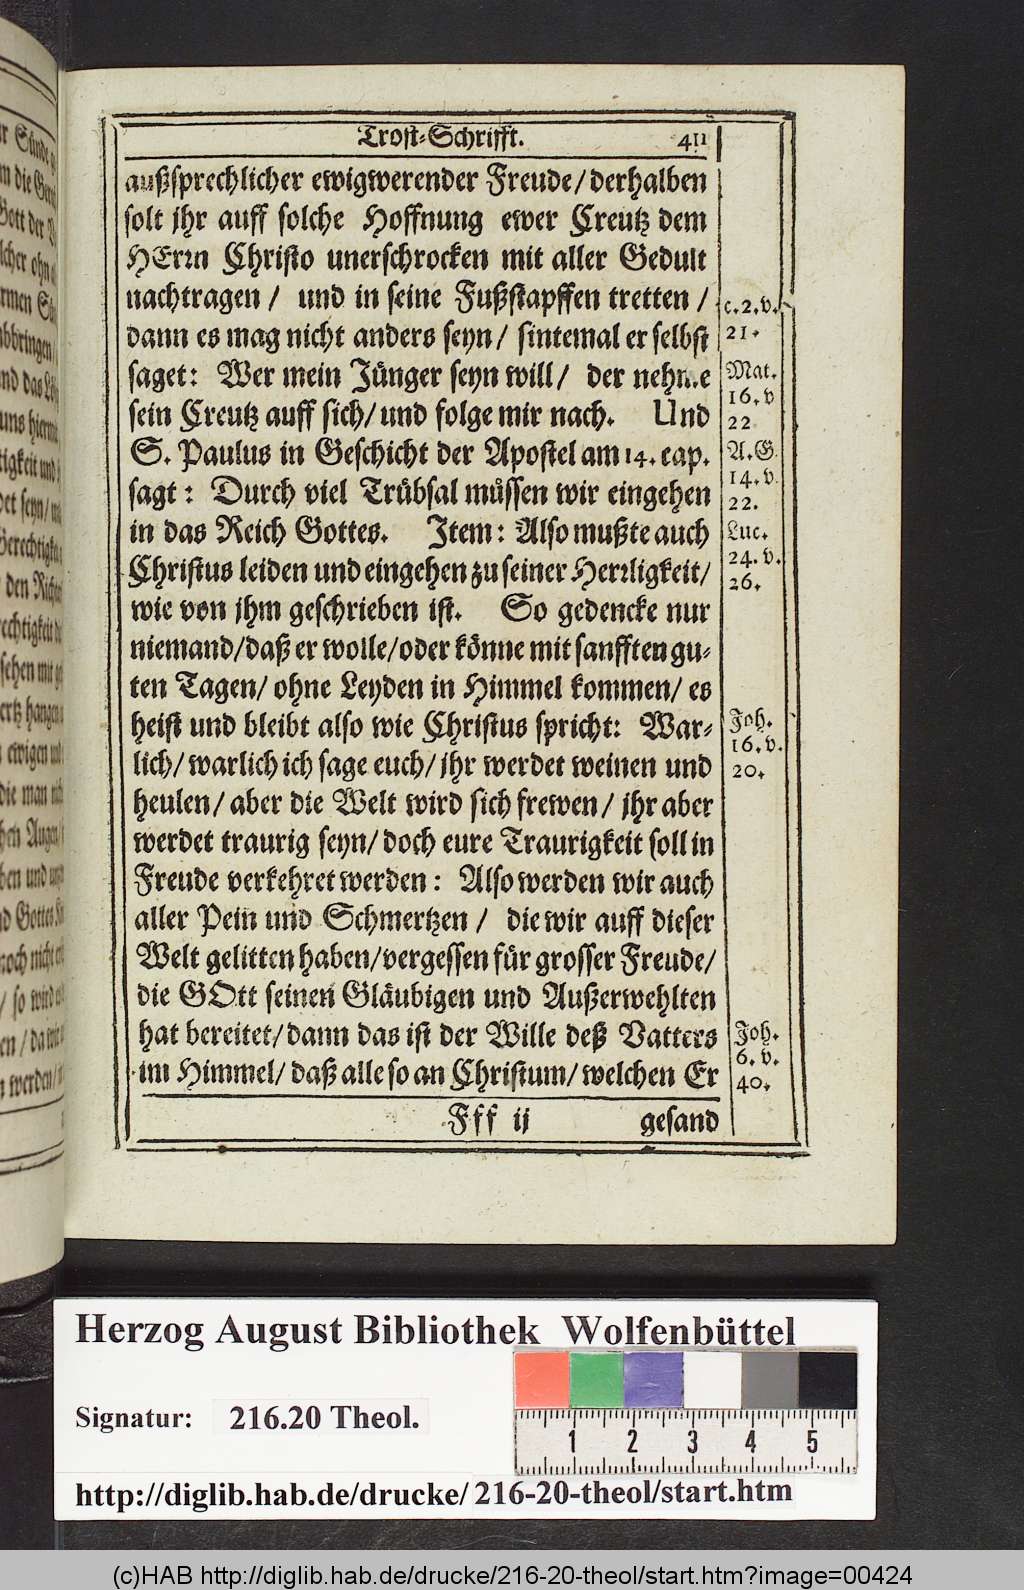 Trost-Schrifft. 411
außsprechlicher ewigwerender Freude/ derhalben
solt jhr auff solche Hoffnung ewer Creutz dem
HErrn Christo unerschrocken mit aller Gedult
nachtragen / und in seine Fußstapffen tretten /
dann es mag nicht anders seyn/ sintemal er selbst
saget: Wer mein Jünger seyn will/ der nehme
sein Creutz auff sich/ und folge mir nach. Und
S. Paulus in Geschicht der Apostel am 14. cap.
sagt: Durch viel Trübsal müssen wir eingehen
in das Reich Gottes. Item: Also mußte auch
Christus leiden und eingehen zu seiner Herrligkeit/
wie von jhm geschrieben ist. So gedencke nur
niemand/ daß er wolle/ oder könne mit sanfften gu-
ten Tagen/ ohne Leyden in Himmel kommen/ es
heist und bleibt also wie Christus spricht: War-
lich/ warlich ich sage euch/ jhr werdet weinen und
heulen/ aber die Welt wird sich frewen/ jhr aber
werdet traurig seyn/ doch eure Traurigkeit soll in
Freude verkehret werden: Also werden wir auch
aller Pein und Schmertzen / die wir auff dieser
Welt gelitten haben/ vergessen für grosser Freude/
die GOtt seinen Gläubigen und Außerwehlten
hat bereitet/ dann das ist der Wille deß Vatters
im Himmel/ daß alle so an Christum/ welchen Er
Fff ij gesand
c. 2. v.
21.
Mat.
16. v
22
A. G.
14. v.
22.
Luc.
24. v.
26.
Joh.
16. v.
20.
Joh.
6. v.
40.
Herzog August Bibliothek Wolfenbüttel
Signatur: 216.20 Theol.
1 2 3 4 5
http://diglib.hab.de/drucke/216-20-theol/start.htm
(c)HAB http://diglib.hab.de/drucke/216-20-theol/start.htm?image=00424